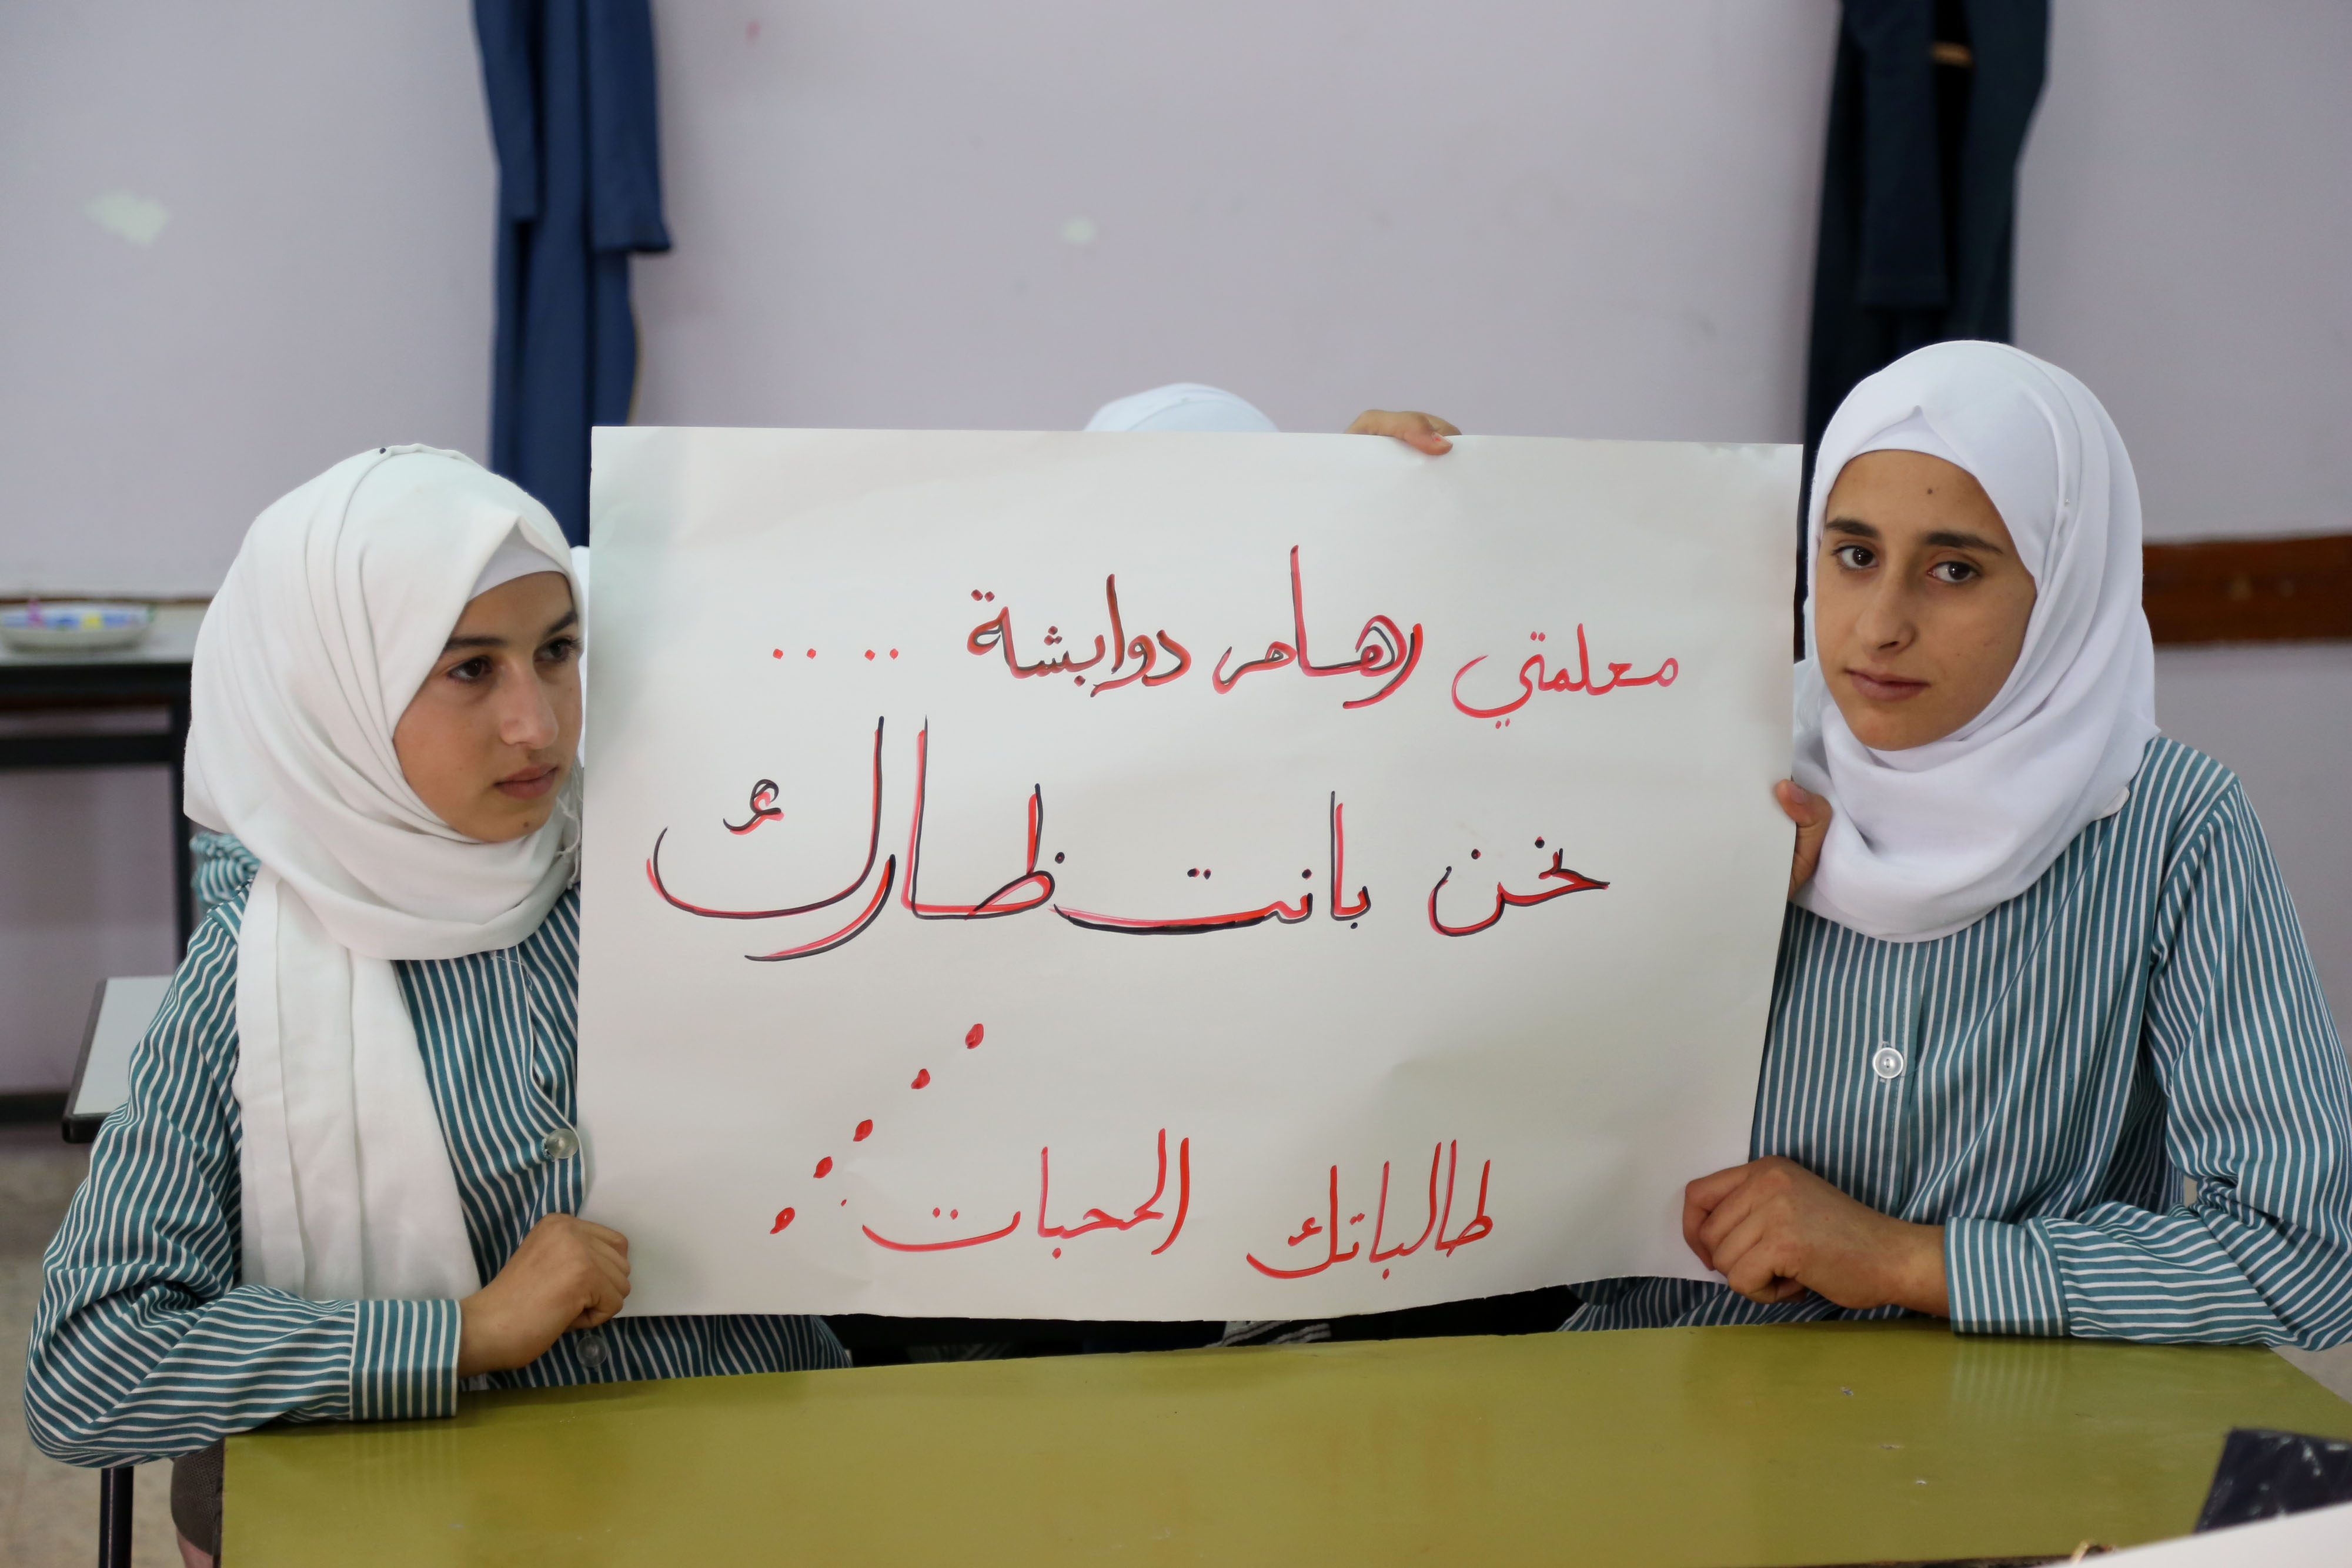 معلمتي رهام دوابشة .. ..
نحن بانتظارك
طالباتك المحبات